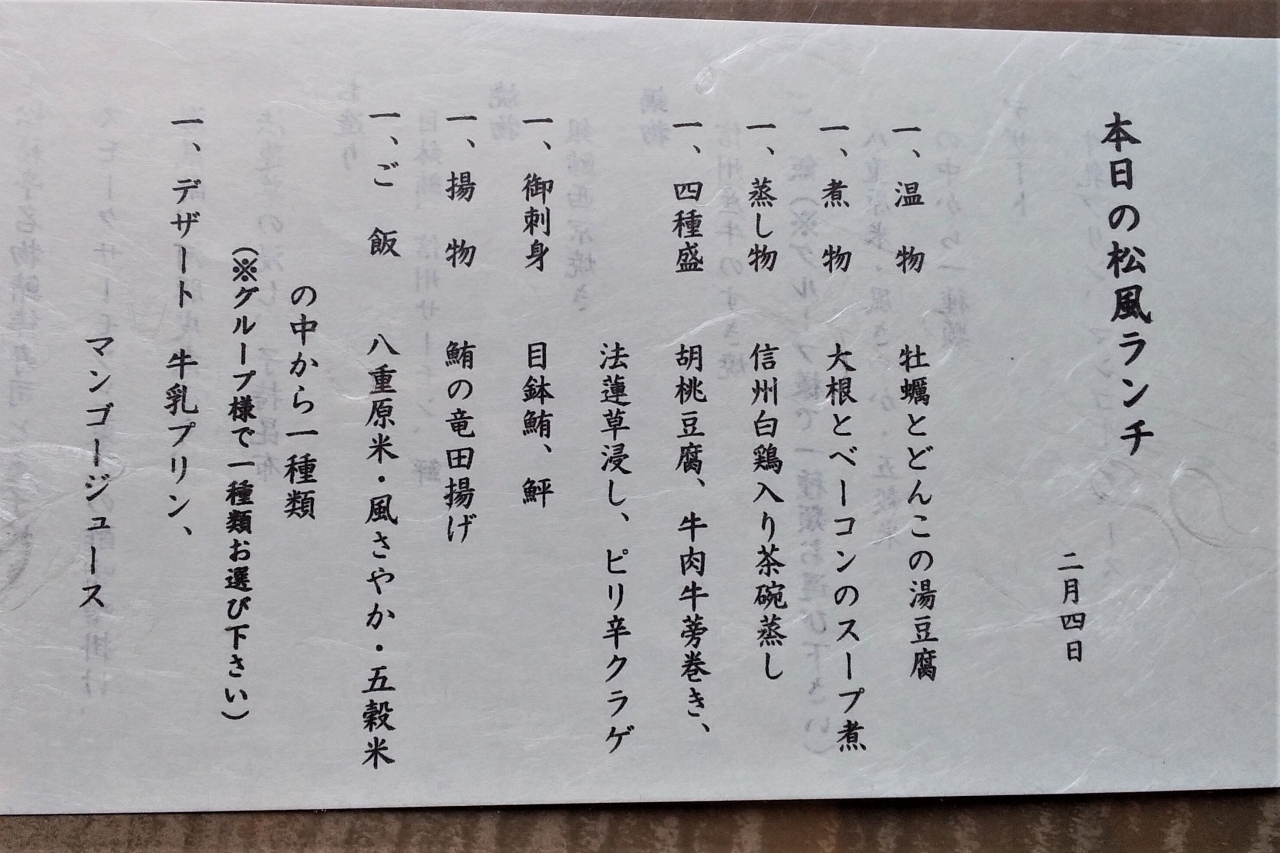 本日の松風ランチ
二月四日
一、温 物 牡蠣とどんこの湯豆腐
一、煮 物 大根とベーコンのスープ煮
一、蒸し物 信州白鶏入り茶碗蒸し
一、四種盛 胡桃豆腐、牛肉牛蒡巻き、
法蓮草浸し、ピリ辛クラゲ
一、御刺身 目鉢鮪、鮃
一、揚 物 鮪の竜田揚げ
一、ご 飯 八重原米・風さやか・五穀米
の中から一種類
(※グループ様で一種類お選び下さい)
一、デザート 牛乳プリン、
マンゴージュース